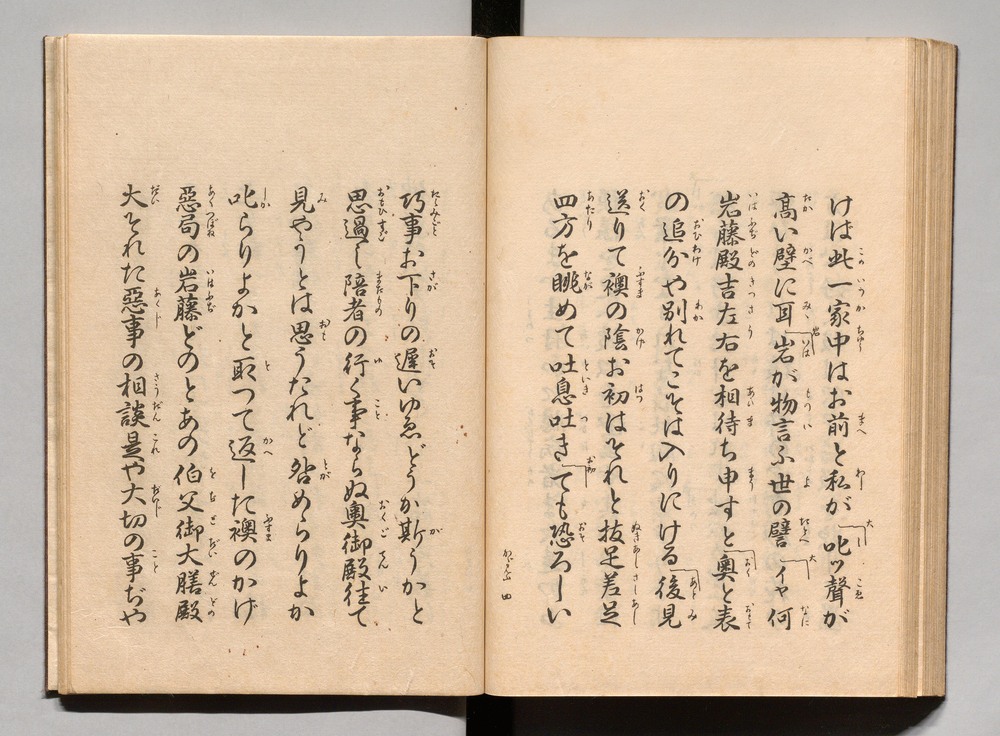 けは此一家中はお前と私が叱ッ聲が
高い壁に耳岩が物言ふ世の譬イヤ何
岩藤殿吉左右を相待ち申すと奥と表
の追分や別れてこそは入りにける後見
送りて襖の陰お初はそれと抜足差足
四方を眺めて吐息吐きても恐ろしい
巧事お下りの遅いゆゑどうか斯うかと
思過し陪者の行く事ならぬ奥御殿往て
見やうとは思うたれど咎めらりよか
叱らりよかと取つて返した襖のかげ
惡局の岩藤どのとあの伯父御大膳殿
大それた惡事の相談是や大切の事ぢや